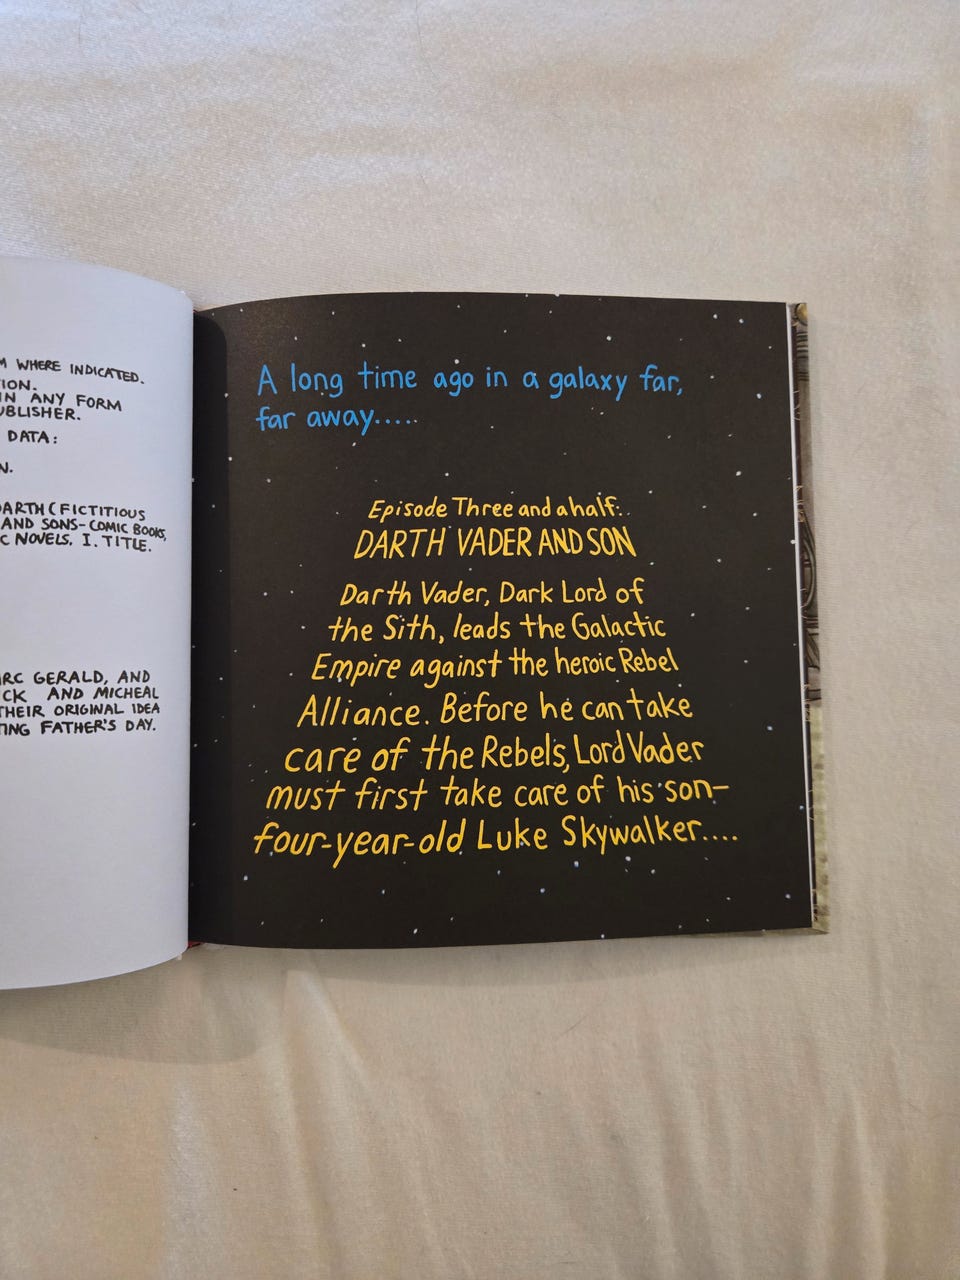 M WHERE INDICATED.
ION.
IN ANY FORM
UBLISHER.
DATA:
N.
DARTH (FICTITIOUS
AND SONS-COMIC BOOKS,
C NOVELS. I. TITLE.
RC GERALD, AND
CK AND MICHEAL
THEIR ORIGINAL IDEA
ING FATHER'S DAY.
A long time ago in a galaxy far,
far away.....
Episode Three and a half:
DARTH VADER AND SON
Darth Vader, Dark Lord of
the Sith, leads the Galactic
Empire against the heroic Rebel
Alliance. Before he can take
care of the Rebels, Lord Vader
must first take care of his son-
four-year-old Luke Skywalker....